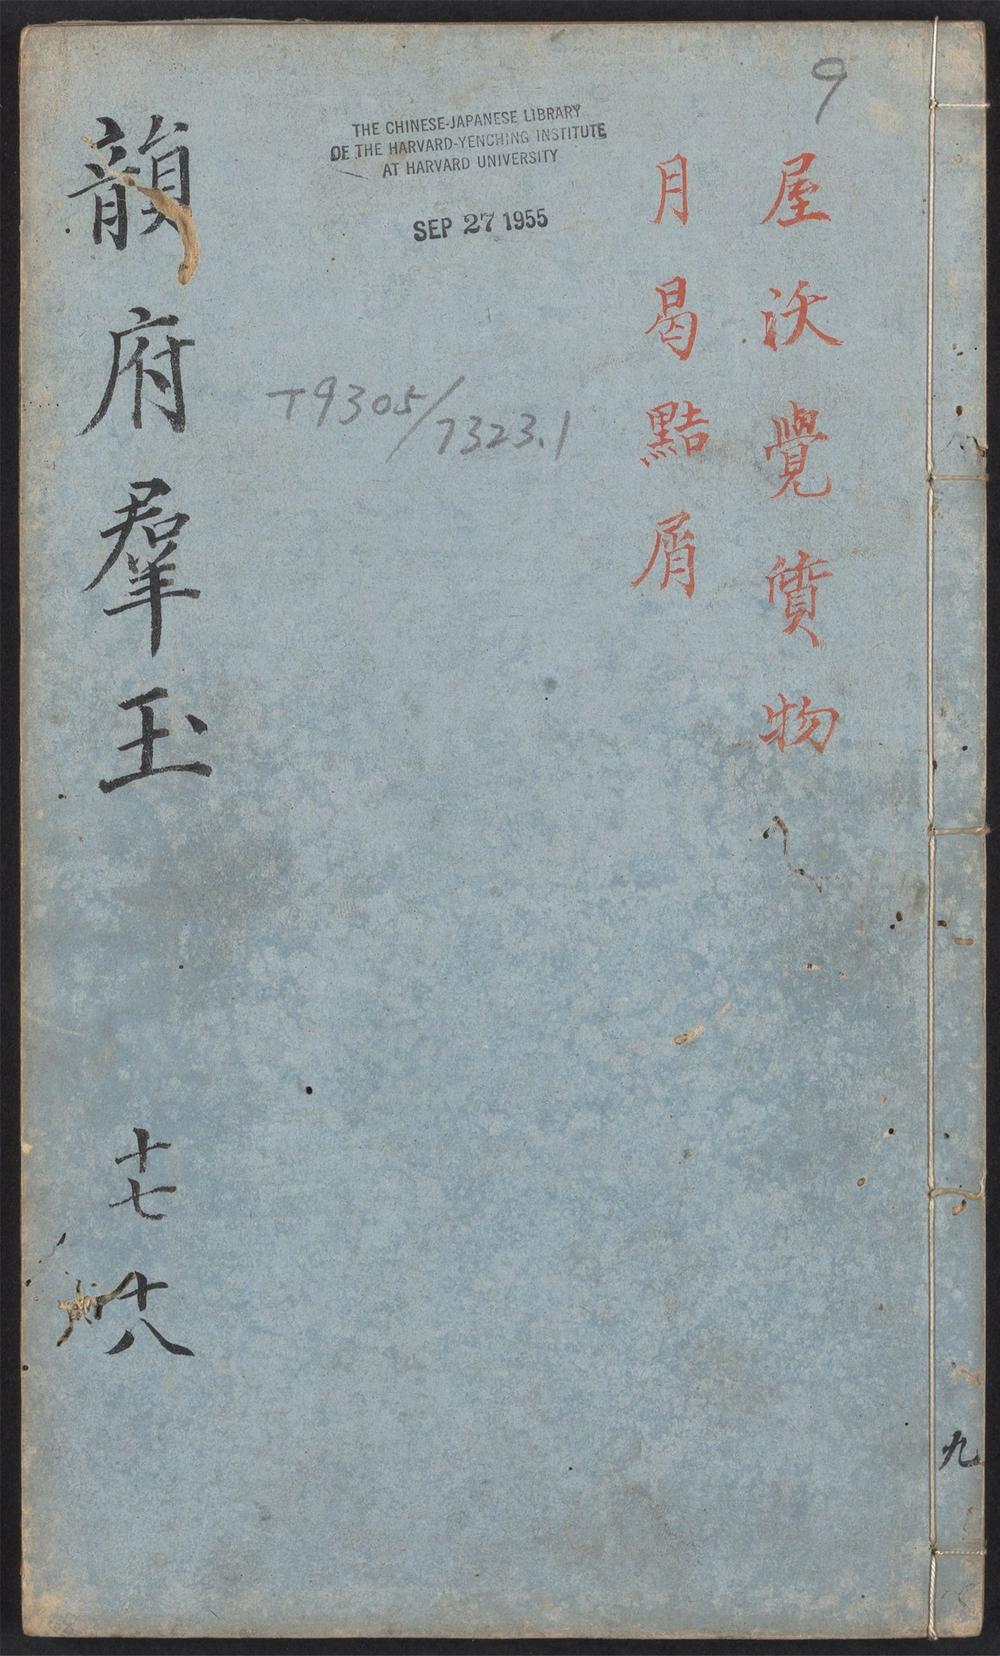 9
屋沃覺質物
月曷黠屑
THE CHINESE-JAPANESE LIBRARY
OF THE HARVARD-YENCHING INSTITUTE
AT HARVARD UNIVERSITY
SEP 27 1955
T9305/7323.1
韻府羣玉
十七
十八
九